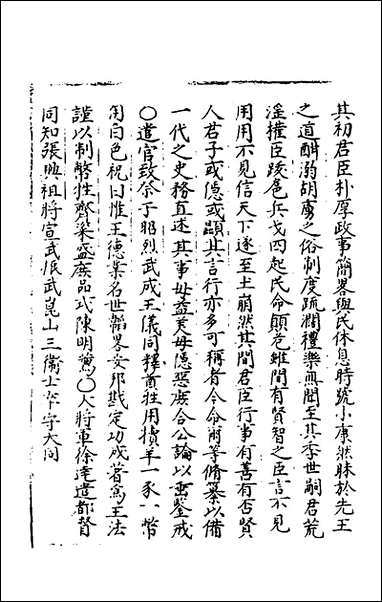 其初君臣朴厚政事簡畧與民休息時號小康然昧於先王
之道酣溺胡虜之俗制度疏濶禮樂無聞至其季世嗣君荒
淫權臣跋扈兵戈四起民命顛危雖間有賢智之臣言不見
用用不見信天下遂至土崩然其間君臣行事有善有否賢
人君子或隱或顯其言行亦多可稱者今命爾等脩纂以備
一代之史務直述其事毋溢美毋隱惡庶合公論以垂鑒戒
○遣官致祭于昭烈武成王儀同釋奠牲用犢羊一豕一幣
用白色祝曰惟王德業名世韜畧安邦戡定功成著為王法
謹以制幣牲齊粢盛庶品式陳明薦○大將軍徐達遣都督
同知張興祖將宣武振武崑山三衞士卒守大同